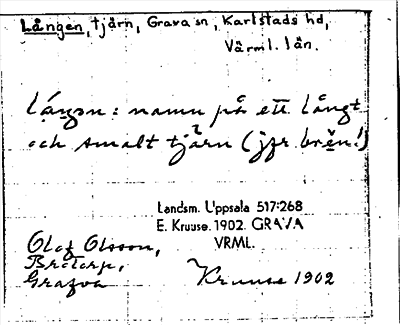 Lången, tjärn, Grava sn, Karlstads hd,
Värml. län.
låŋən: namn på ett långt
och smalt tjärn (jfr brên!)
Landsm. Uppsala 517:268
E. Kruuse. 1902. GRAVA
VRML.
Olof Olsson,
Gråfva
Kruuse 1902